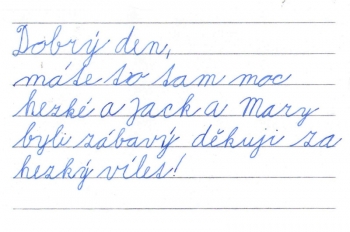 Dobrý den,
máte to tam moc
hezké a Jack a Mary
byli zábavý děkuji za
hezký vílet!